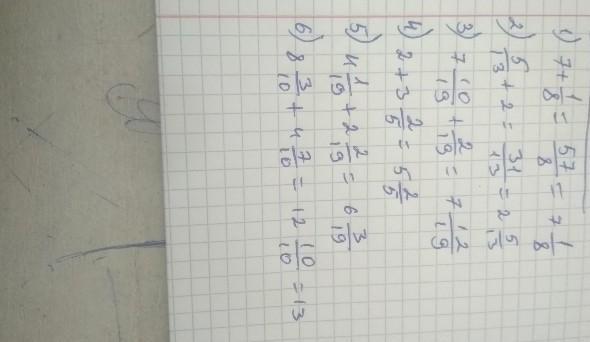 1) 7 + 1/8 = 57/8 = 7 1/8
2) 5/13 + 2 = 31/13 = 2 5/13
3) 7 10/19 + 2/19 = 7 12/19
4) 2 + 3 2/5 = 5 2/5
5) 4 1/19 + 2 2/19 = 6 3/19
6) 8 3/10 + 4 7/10 = 12 10/10 = 13